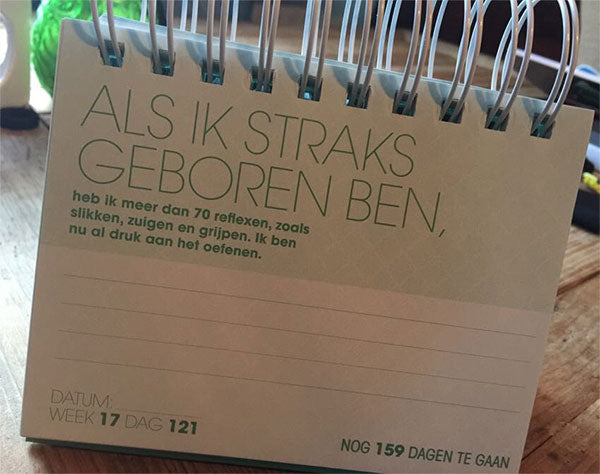 ALS IK STRAKS
GEBOREN BEN,
heb ik meer dan 70 reflexen, zoals
slikken, zuigen en grijpen. Ik ben
nu al druk aan het oefenen.
DATUM:
WEEK 17 DAG 121
NOG 159 DAGEN TE GAAN